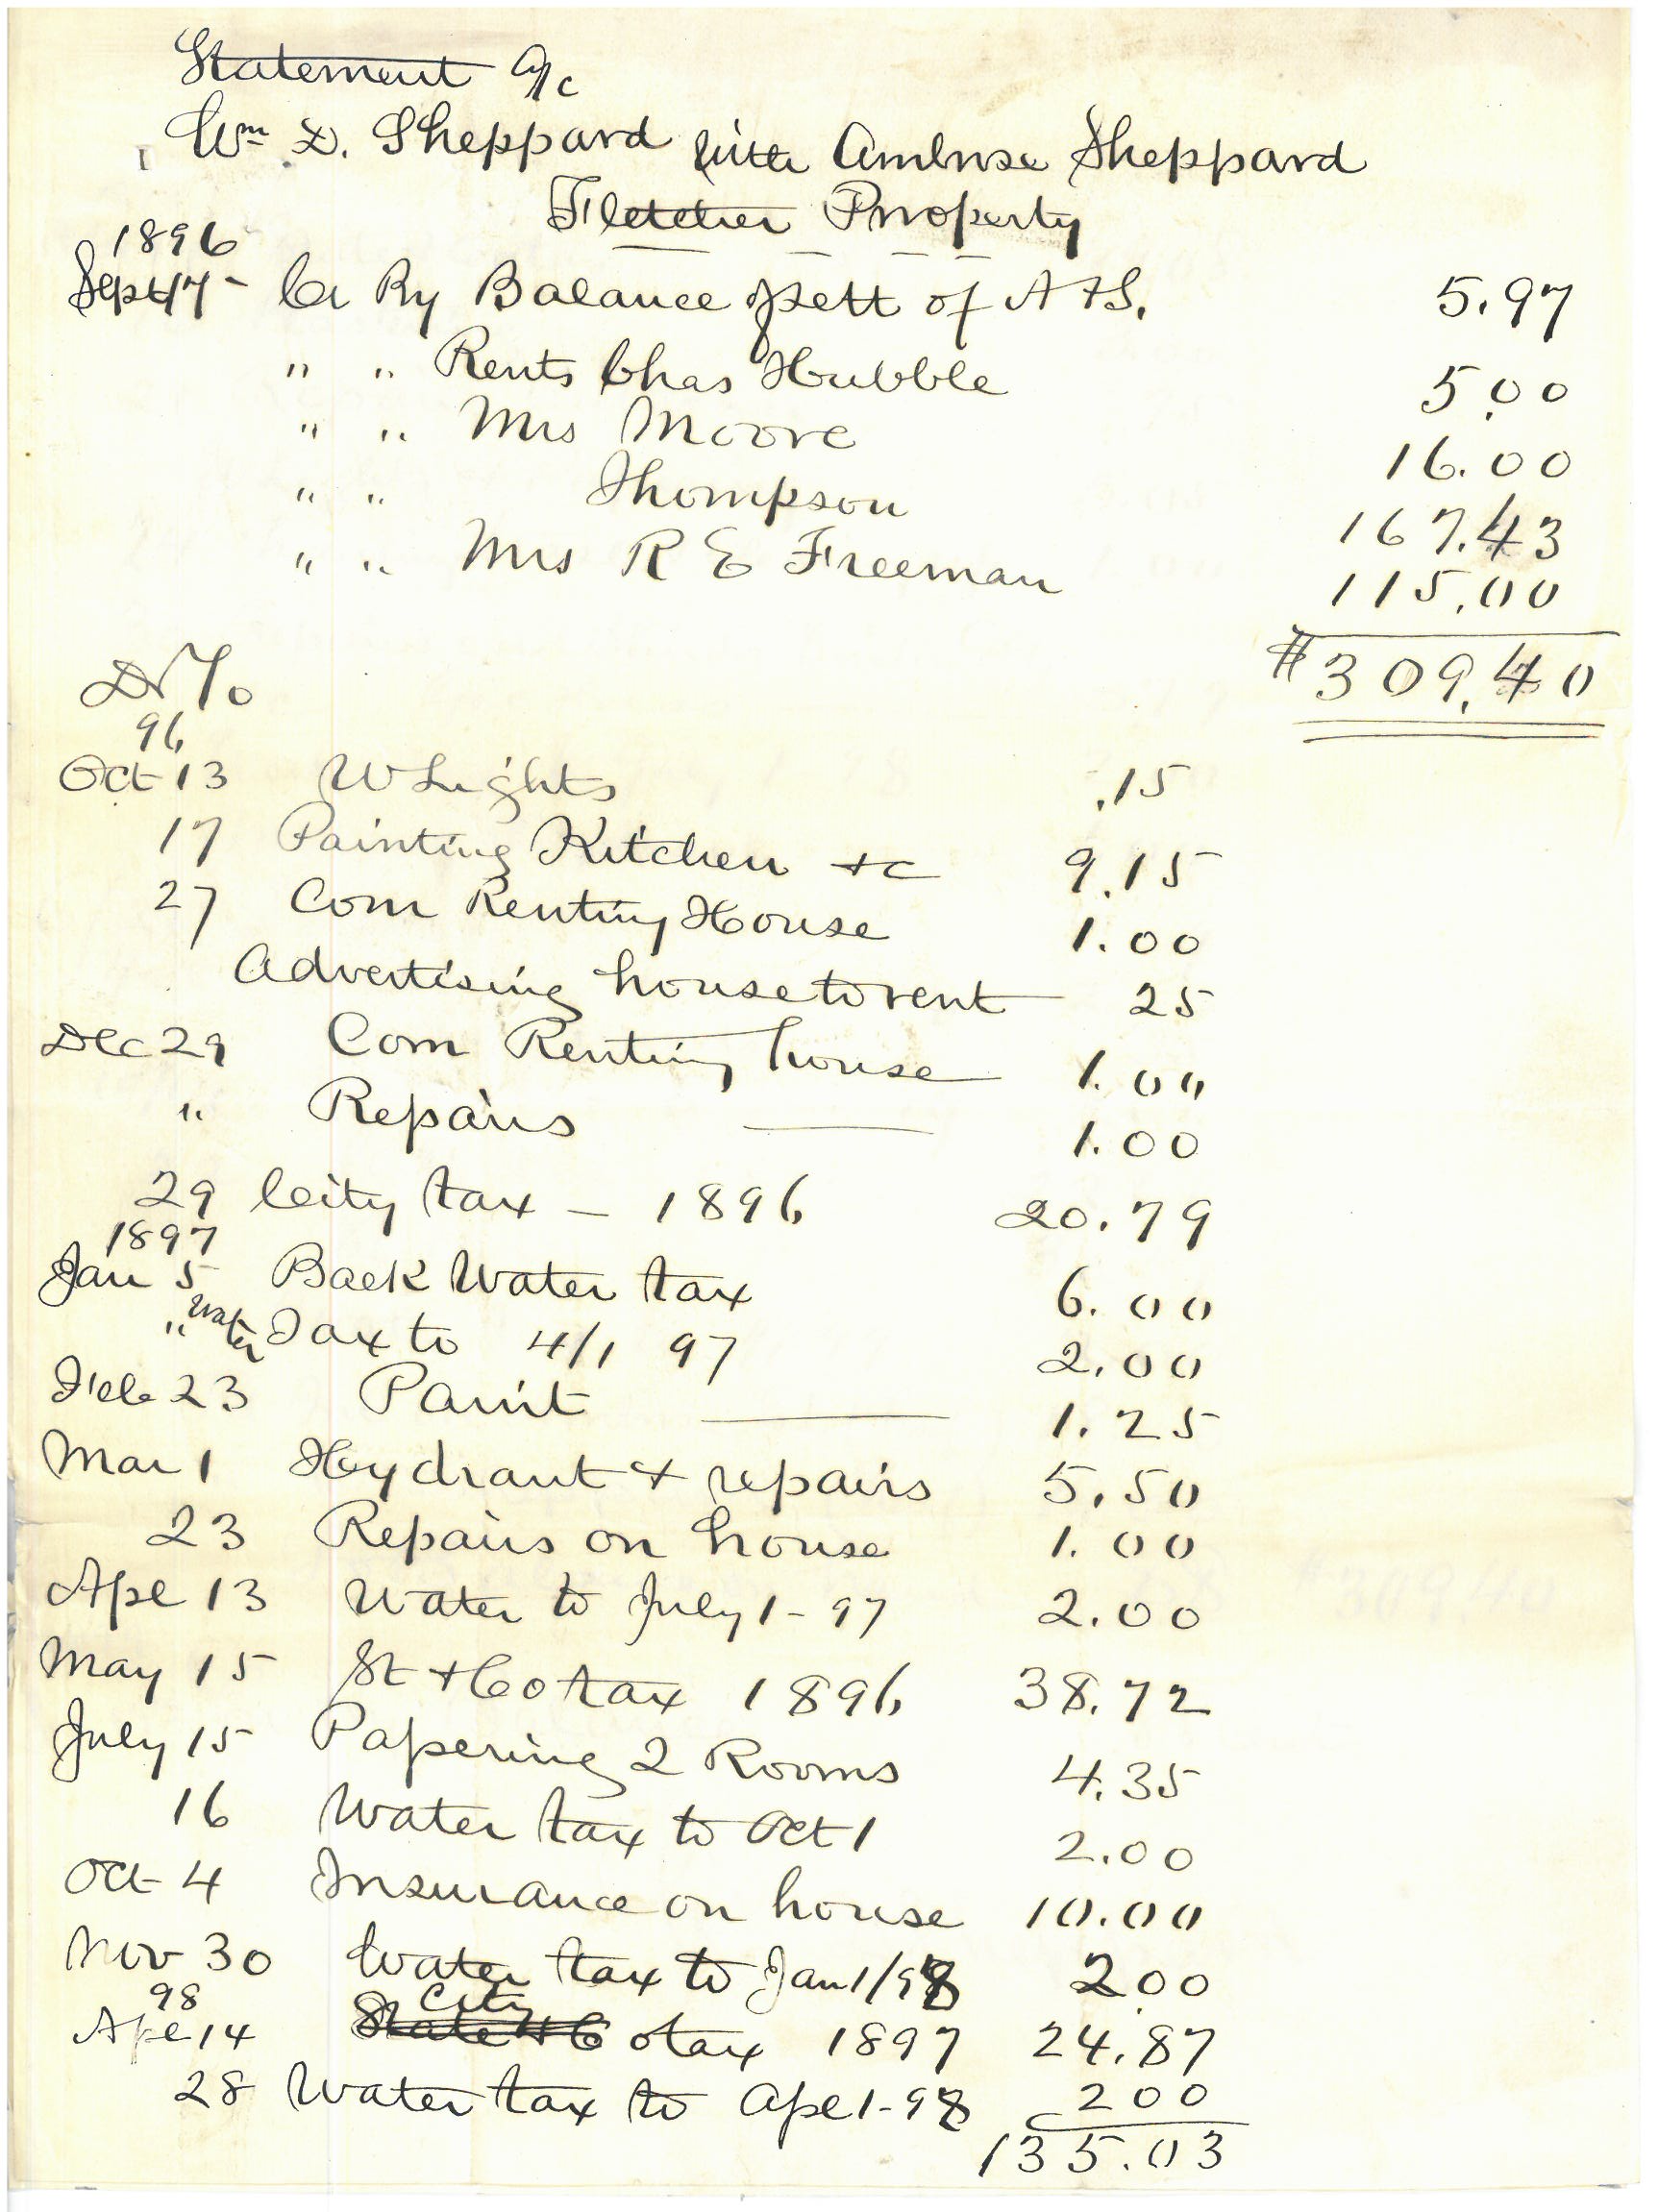 Statement a/c
Wm D. Sheppard with Ambrose Sheppard
Fletcher Property
1896
Sept 17 - Cr By Balance settt of A F S. 5.97
" " Rents Chas Hubble 5.00
" " Mrs Moore 16.00
" " Thompson 167.43
" " Mrs R E Freeman 115.00
$309.40
Dr To
96
Oct 13 W Lights .15
17 Painting Kitchen +c 9.15
27 Com Renting House 1.00
Advertising house to rent 25
Dec 29 Com Renting house 1.00
" Repairs — 1.00
29 City tax — 1896 20.79
1897
Jan 5 Back Water tax 6.00
" Water Tax to 4/1 97 2.00
Feb 23 Paint — 1.25
Mar 1 Hydrant + repairs 5.50
23 Repairs on house 1.00
Apl 13 Water to July 1 - 97 2.00
May 15 St + Co tax 1896 38.72
July 15 Papering 2 Rooms 4.35
16 Water tax to Oct 1 2.00
Oct 4 Insurance on house 10.00
Nov 30 Water tax to Jan 1/98 2.00
98 City
Apl 14 State + Co tax 1897 24.87
28 Water tax to Apl 1 - 98 2 00
135.03